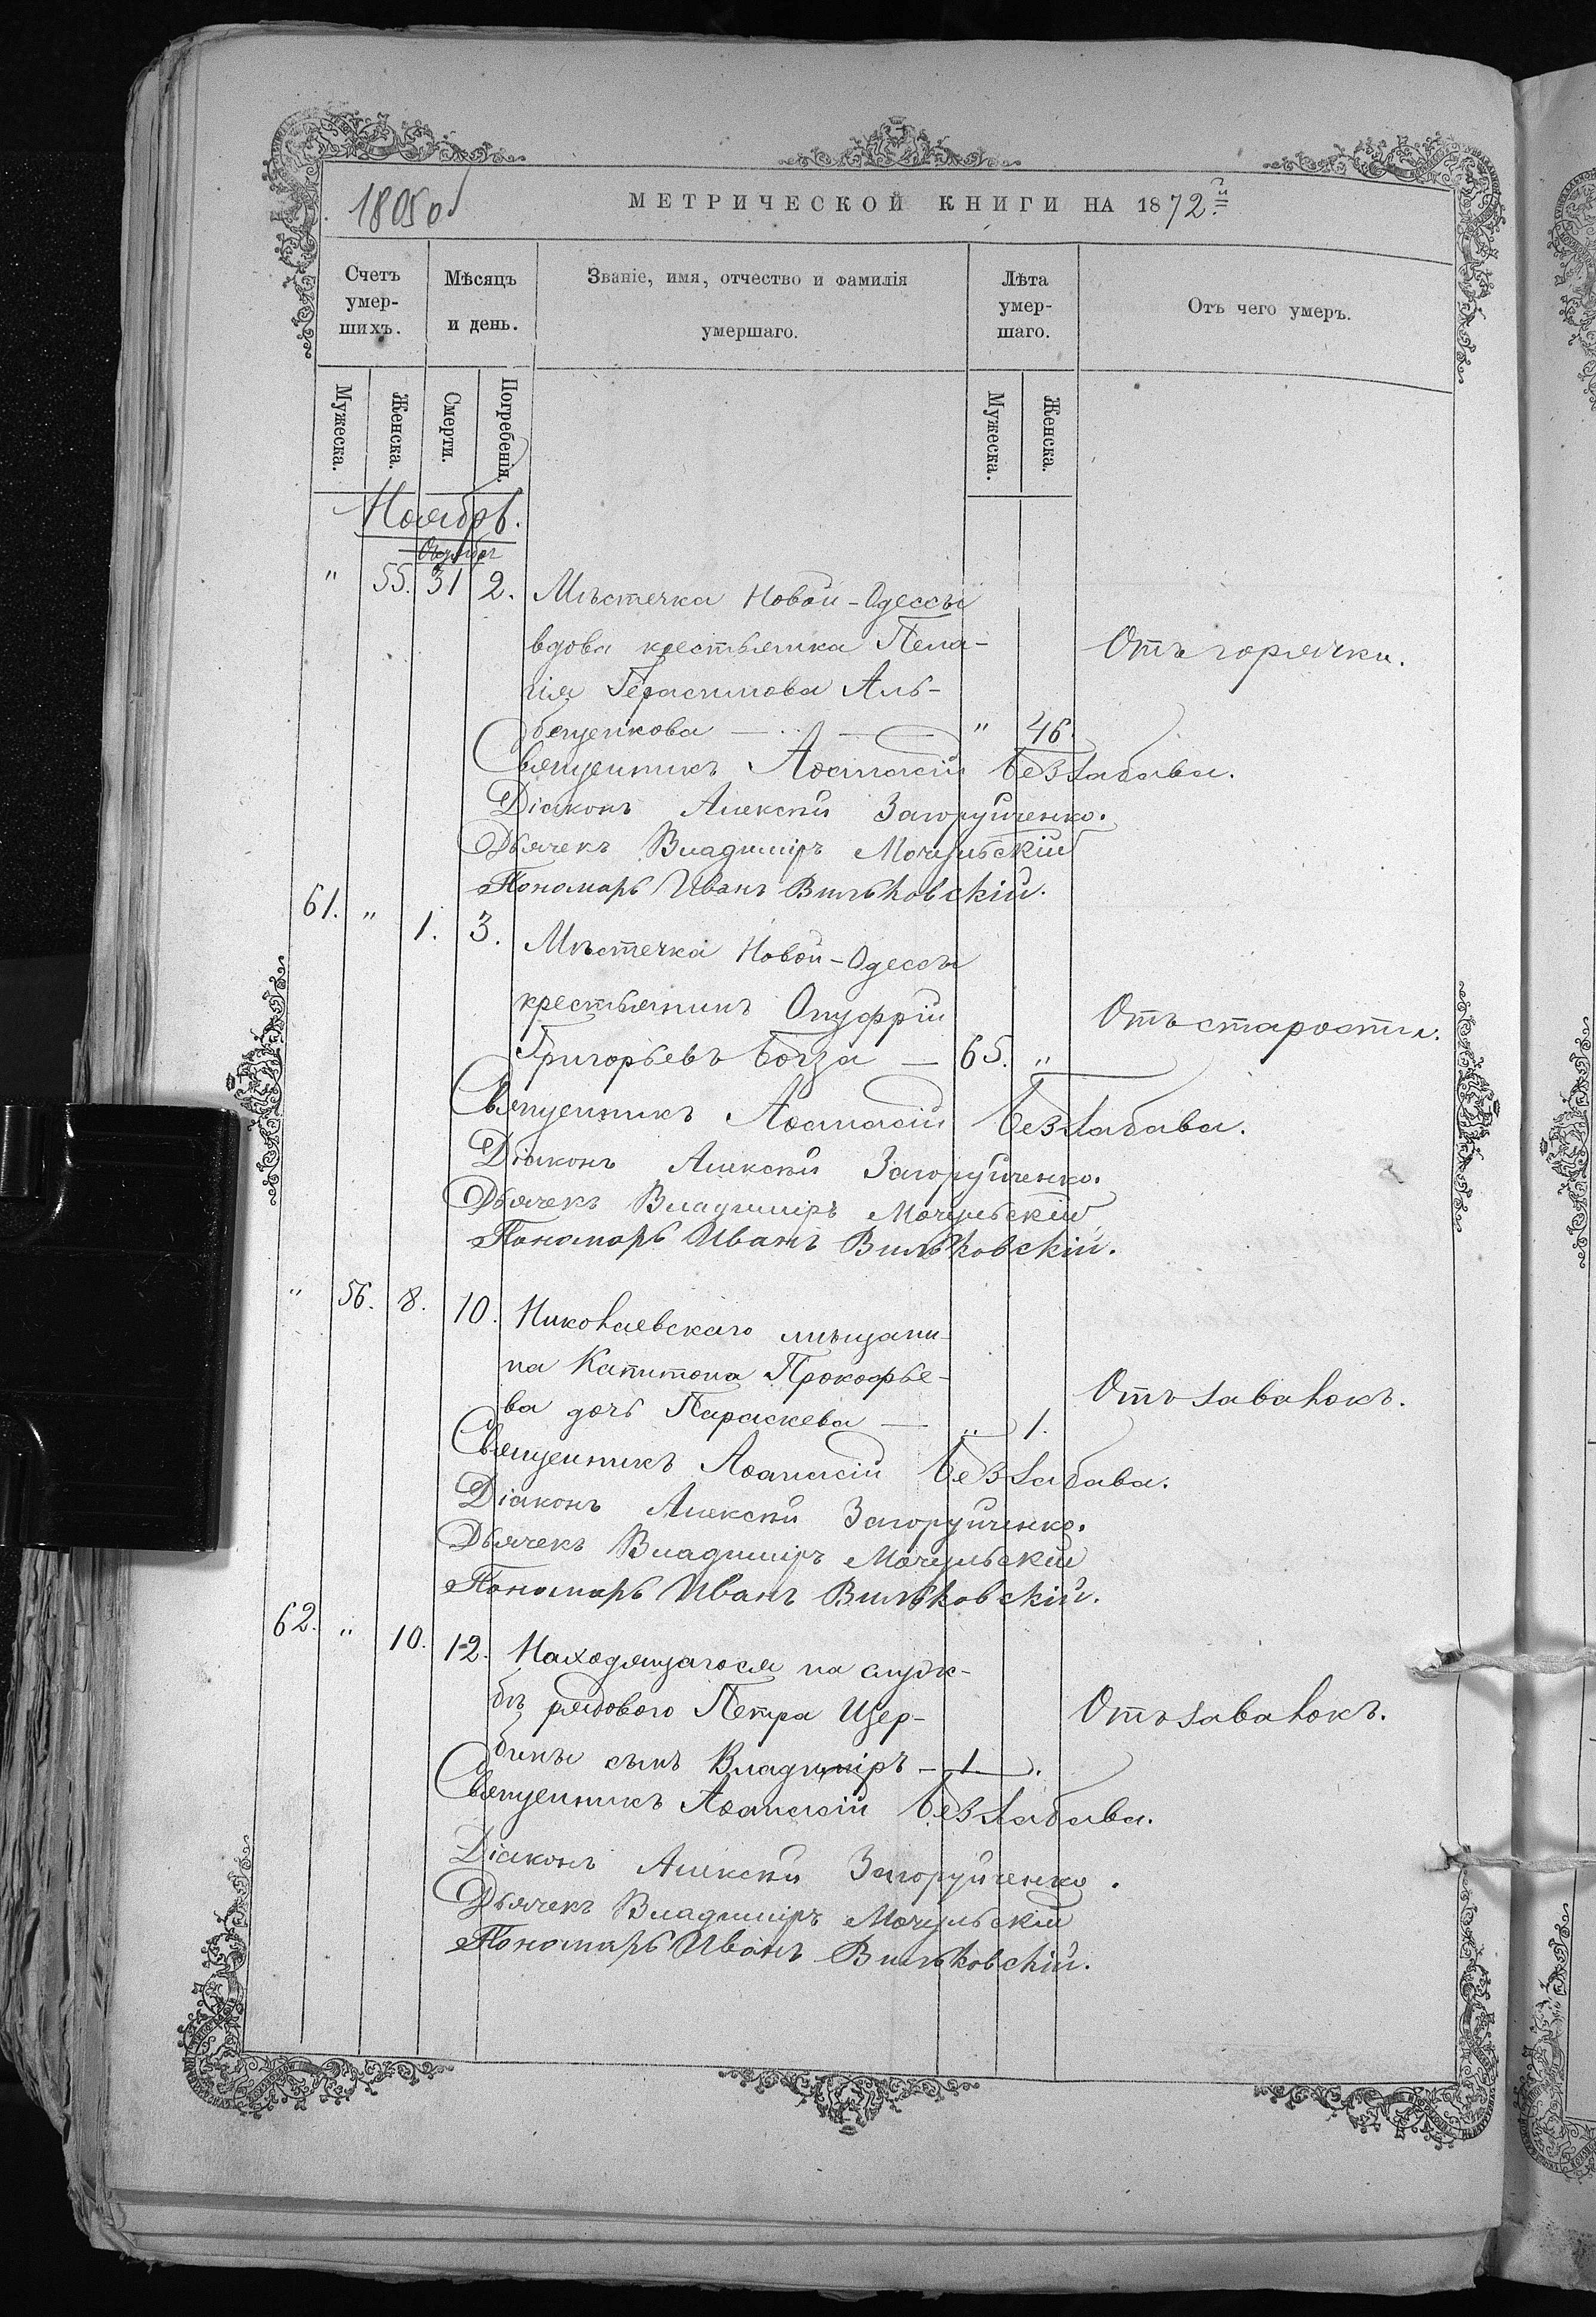 1805 об
МЕТРИЧЕСКОЙ КНИГИ НА 1872й
Счетъ умер-шихъ.
Мѣсяцъ и день.
Званіе, имя, отчество и фамилія умершаго.
Лѣта умер-шаго.
Отъ чего умеръ.
Мужеска.
Женска.
Смерти.
Погребенія.
Мужеска.
Женска.
Ноябрь.
Октябрь
" 55. 31 2. Мѣстечка Новой-Одессы
вдова крестьянка Пела-
гія Герасимова Аль-
Отъ горячки.
бещенкова — " 46.
Священникъ Аѳанасій Беззабава.
Діаконъ Алексѣй Загоруйченко.
Дьячекъ Владиміръ Мочульскій
Пономарь Иванъ Вильковскій.
61. " 1. 3. Мѣстечка Новой-Одессы
крестьянинъ Онуфрій
Отъ старости.
Григорьевъ Богза — 65. "
Священникъ Аѳанасій Беззабава.
Діаконъ Алексѣй Загоруйченко.
Дьячекъ Владиміръ Мочульскій
Пономарь Иванъ Вильковскій.
" 56. 8. 10. Николаевскаго мѣщани-
на Капитона Прокофье-
Отъ завалокъ.
ва дочь Параскева — " 1.
Священникъ Аѳанасій Беззабава.
Діаконъ Алексѣй Загоруйченко.
Дьячекъ Владиміръ Мочульскій
Пономарь Иванъ Вильковскій.
62. " 10. 12. Находящагося на служ-
бѣ рядового Петра Щер-
Отъ завалокъ.
бины сынъ Владиміръ — 1 "
Священникъ Аѳанасій Беззабава.
Діаконъ Алексѣй Загоруйченко.
Дьячекъ Владиміръ Мочульскій
Пономарь Иванъ Вильковскій.